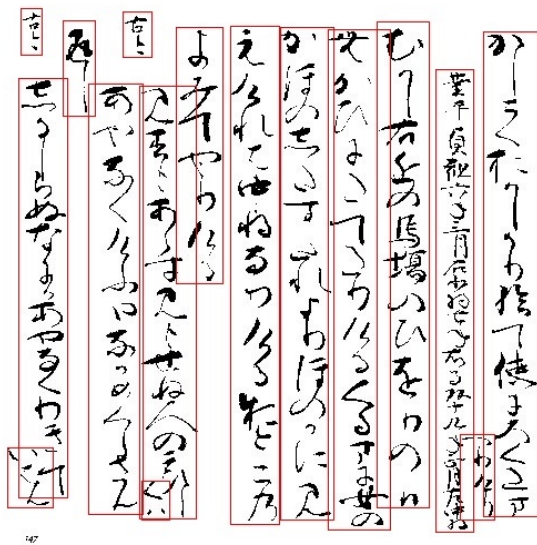 かしこくおかしかり給て使にろくたま
へりけり
業平貞観六年三月右少将七年右馬頭十九年正月左中将
むかし右近の馬場のひをりの日
むかひにたてたりけるくるまに女の
かほのしたすたれよりほのかに見
えけれは中将なりけるおとこの
よみてやりける
古今
見すもあらす見もせぬ人のこひし
くは
あやなくけふやなかめくらさん
返し
古今
しるしらぬなにかあやなくわきて
いはん
147